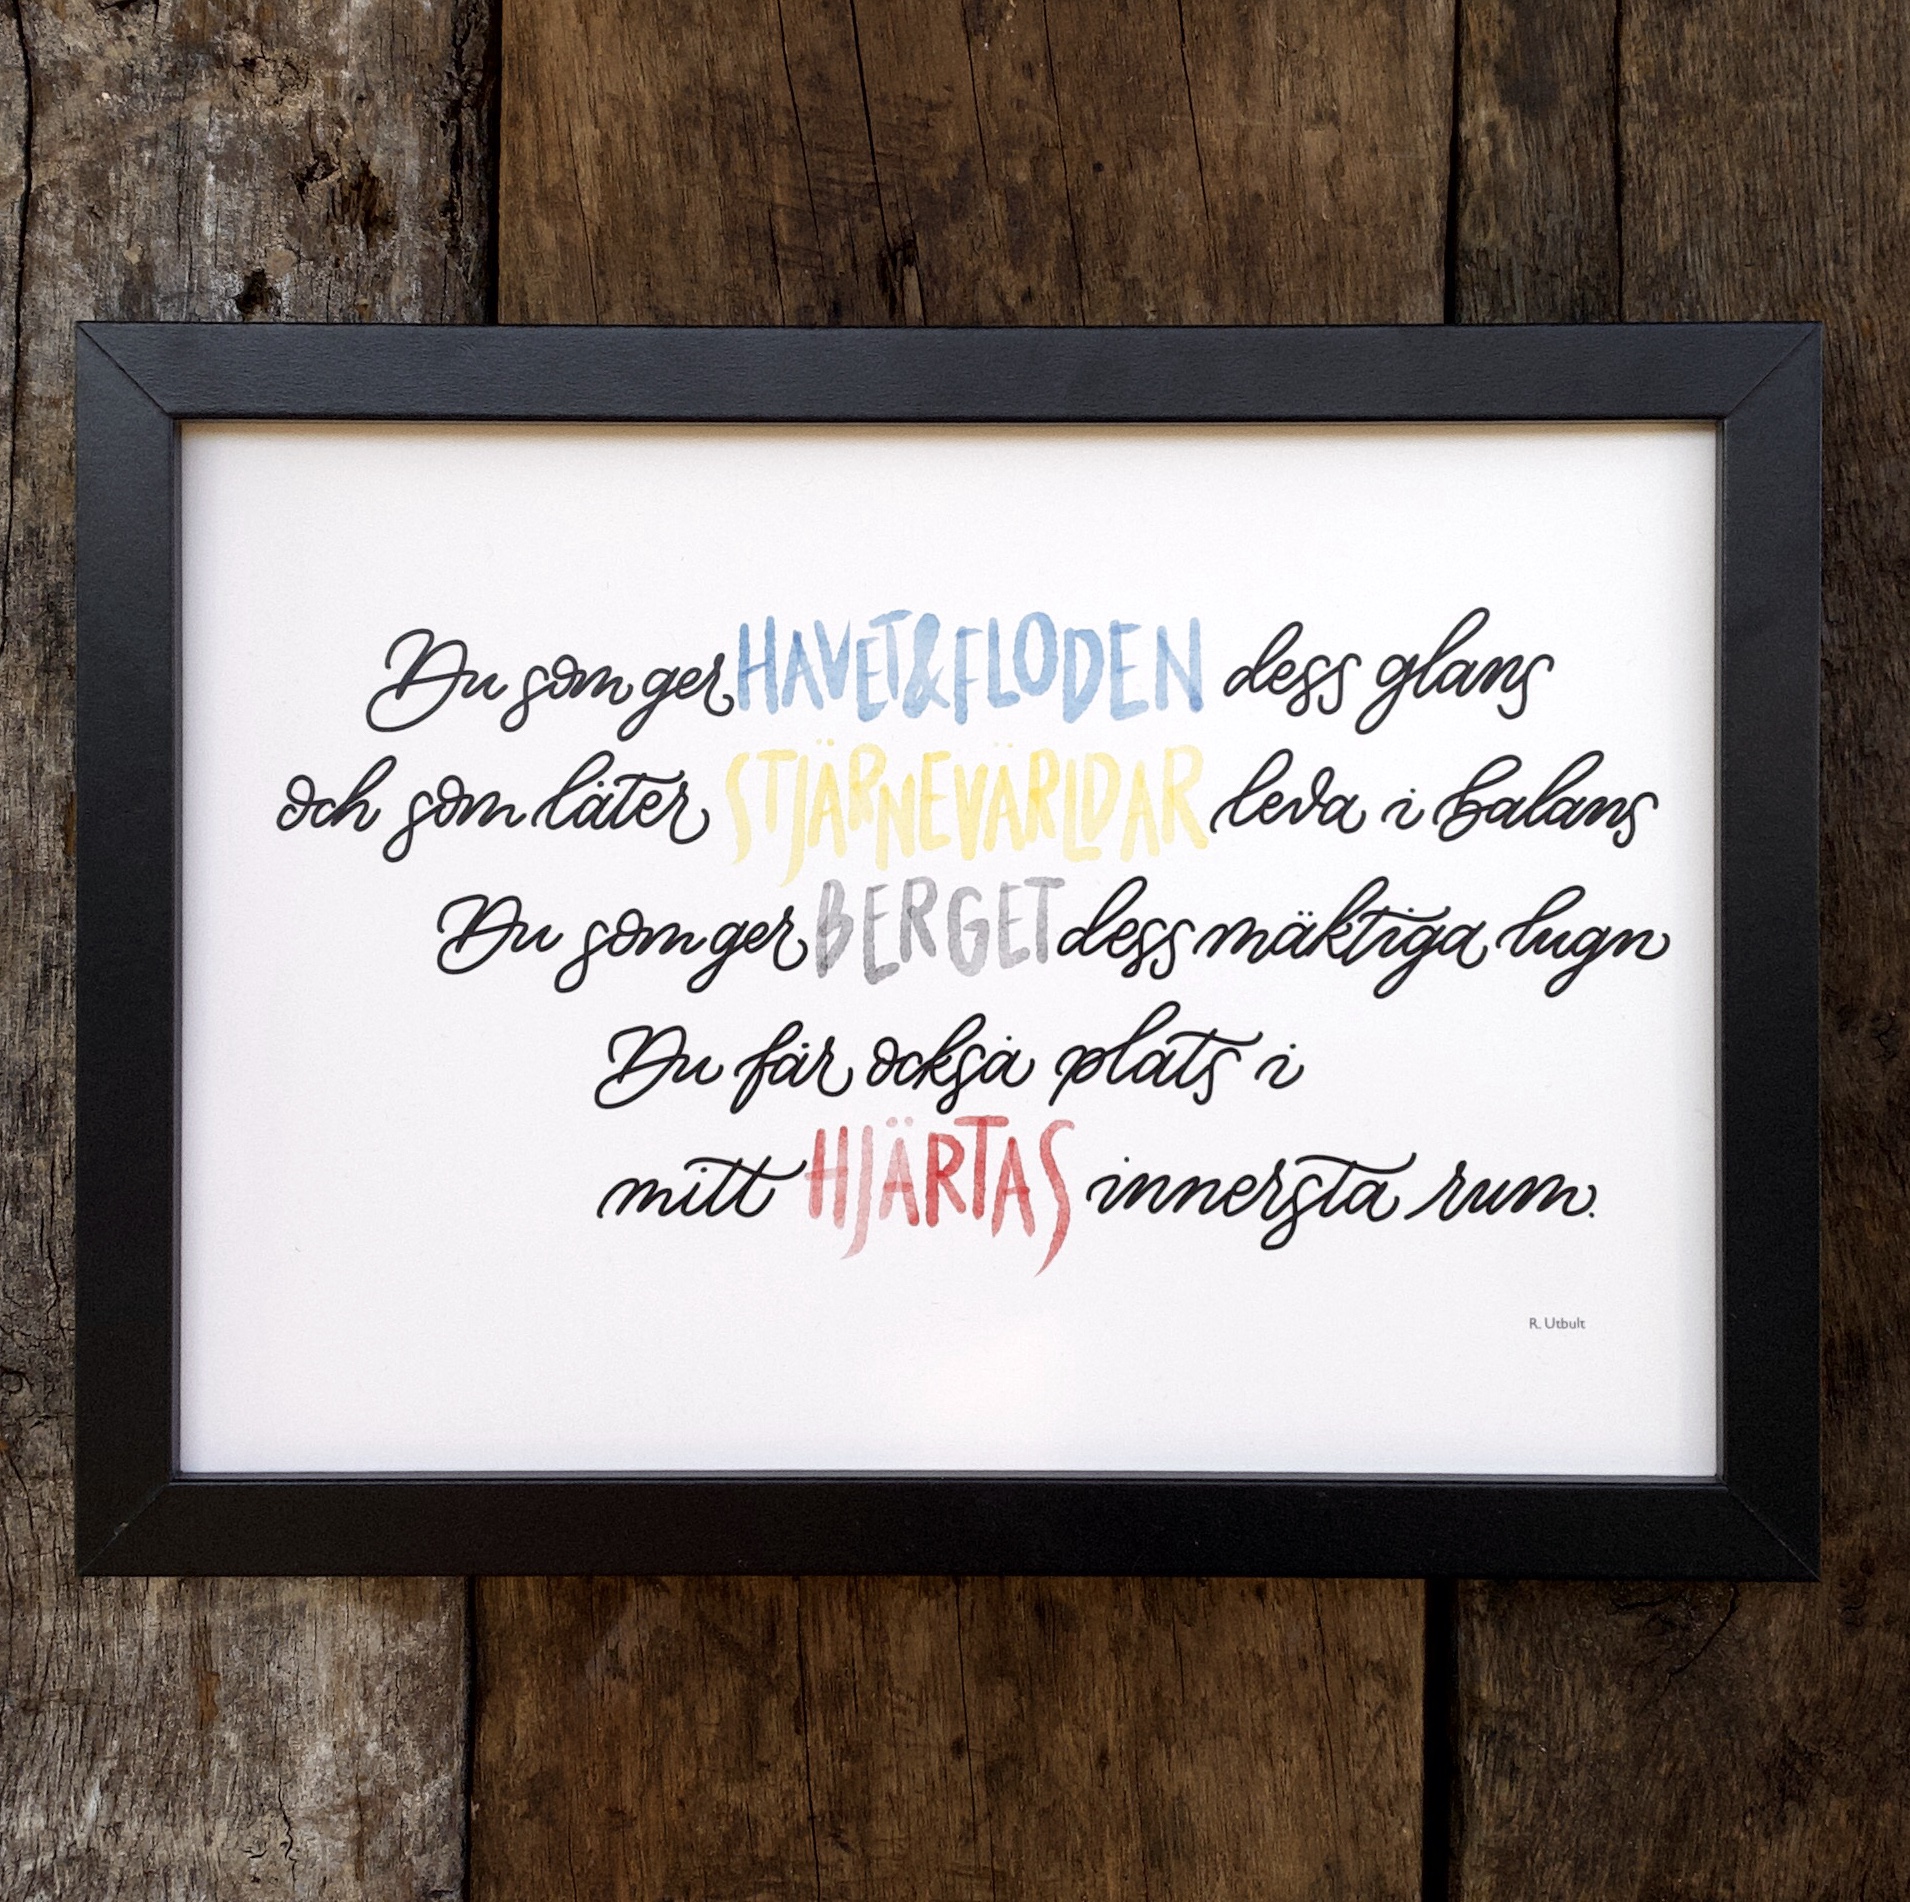 Du som ger HAVET & FLODEN dess glans
och som låter STJÄRNEVÄRLDAR leva i balans
Du som ger BERGET dess mäktiga lugn
Du får också plats i
mitt HJÄRTAS innersta rum.
R. Utbult